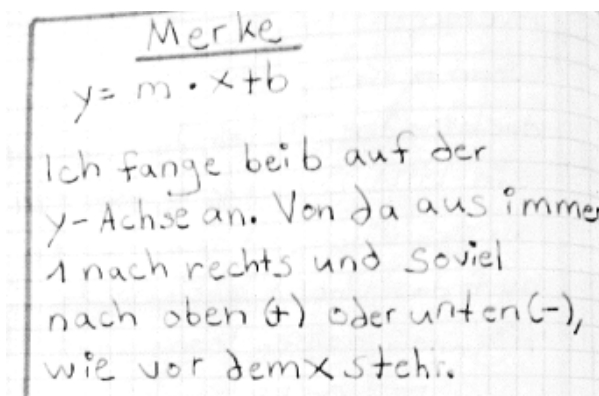 Merke
y = m · x + b
Ich fange bei b auf der
y-Achse an. Von da aus imme
1 nach rechts und soviel
nach oben (+) oder unten (-),
wie vor dem x steht.